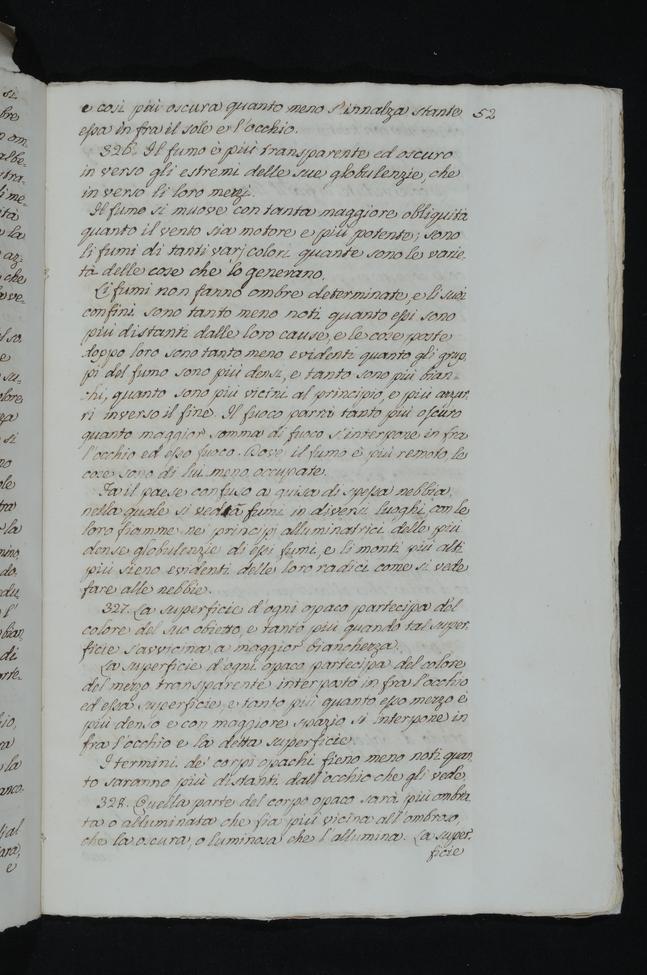 e così più oscura quanto meno s'innalza stante 52
essa in fra il sole e l'occhio.
326. Il fumo è più transparente ed oscuro
in verso gli estremi delle sue globulenzie, che
in verso li loro mezzi.
Il fumo si muove con tanta maggiore obliquità
quanto il vento sia motore e più potente; sono
li fumi di tanti varj colori quante sono le varie-
tà delle cose che lo generano.
Li fumi non fanno ombre determinate, e li suoi
confini sono tanto meno noti quanto essi sono
più distanti dalle loro cause, e le cose poste
doppo loro sono tanto meno evidenti quanto gli grup-
pi del fumo sono più densi, e tanto sono più bian-
chi, quanto sono più vicini al principio, e più azur-
ri inverso il fine. Il fuoco parrà tanto più oscuro
quanto maggior somma di fuoco s'interpone in fra
l'occhio ed esso fuoco. Dove il fumo è più remoto le
cose sono di lui meno occupate.
Fa il paese confuso a guisa di spessa nebbia,
nella quale si vedrà fumi in diversi luoghi con le
loro fiamme ne' principj alluminatrici delle più
dense globulenzie di essi fumi, e li monti più alti
più sieno evidenti delle loro radici come si vede
fare alle nebbie.
327. La superficie d'ogni opaco partecipa del
colore del suo obietto, e tanto più quando tal super-
ficie s'avvicina a maggior bianchezza.
La superficie d'ogni opaco partecipa del colore
del mezzo transparente interposto in fra l'occhio
ed essa superficie, e tanto più quanto esso mezzo è
più denso e con maggiore spazio si interpone in
fra l'occhio e la detta superficie.
I termini de' corpi opachi fieno meno noti quan-
to saranno più distanti dall'occhio che gli vede.
328. Quella parte del corpo opaco sarà più ombra-
ta o alluminata che fia più vicina all'ombroso,
che la oscura, o luminosa che l'allumina. La super-
ficie